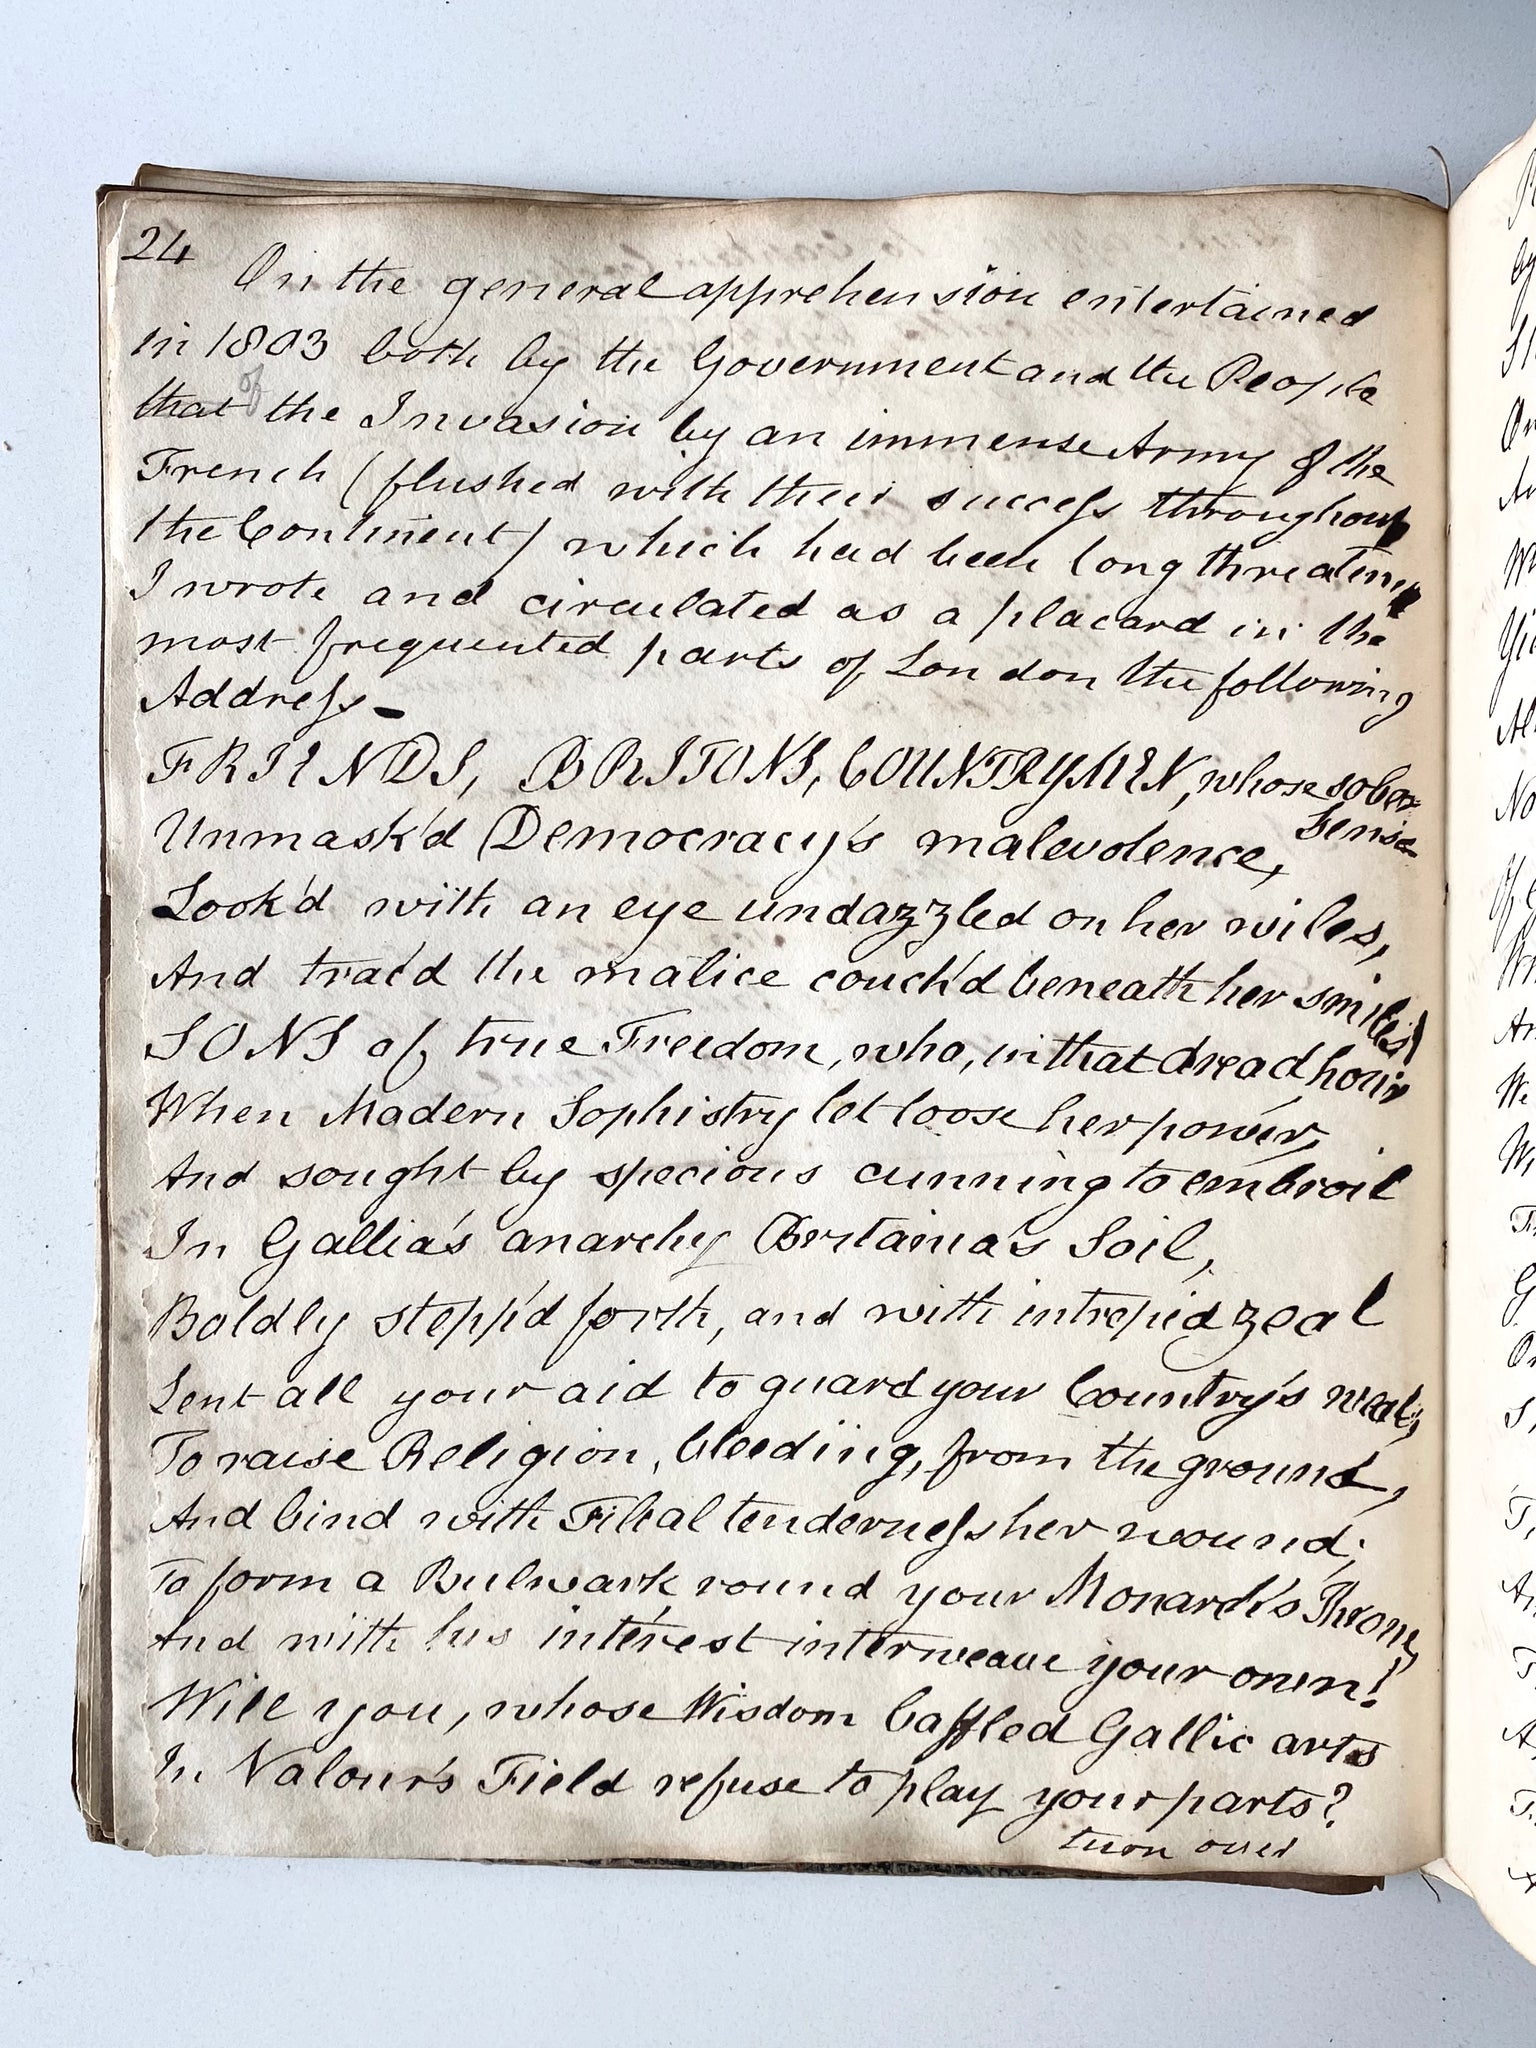 24
On the general apprehension entertained
in 1803 both by the Government and the People
of
that the Invasion by an immense Army of the
French (flushed with their success throughout
the Continent) which had been long threatened
I wrote and circulated as a placard in the
most frequented parts of London the following
Address –
FRIENDS, BRITONS, COUNTRYMEN, whose sober
Sense
Unmask'd Democracy's malevolence,
Look'd with an eye undazzled on her wiles,
And trac'd the malice couch'd beneath her smiles!
SONS of true Freedom, who, in that dread hour,
When Modern Sophistry let loose her power,
And sought by specious cunning to embroil
In Gallia's anarchy Britania's Soil,
Boldly stepp'd forth, and with intrepid zeal
Lent all your aid to guard your Country's weal,
To raise Religion, bleeding, from the ground,
And bind with Filial tenderness her wound;
To form a Bulwark round your Monarch's Throne,
And with his interest interweave your own!
Will you, whose Wisdom baffled Gallic arts
In Valour's Field refuse to play your parts?
turn over